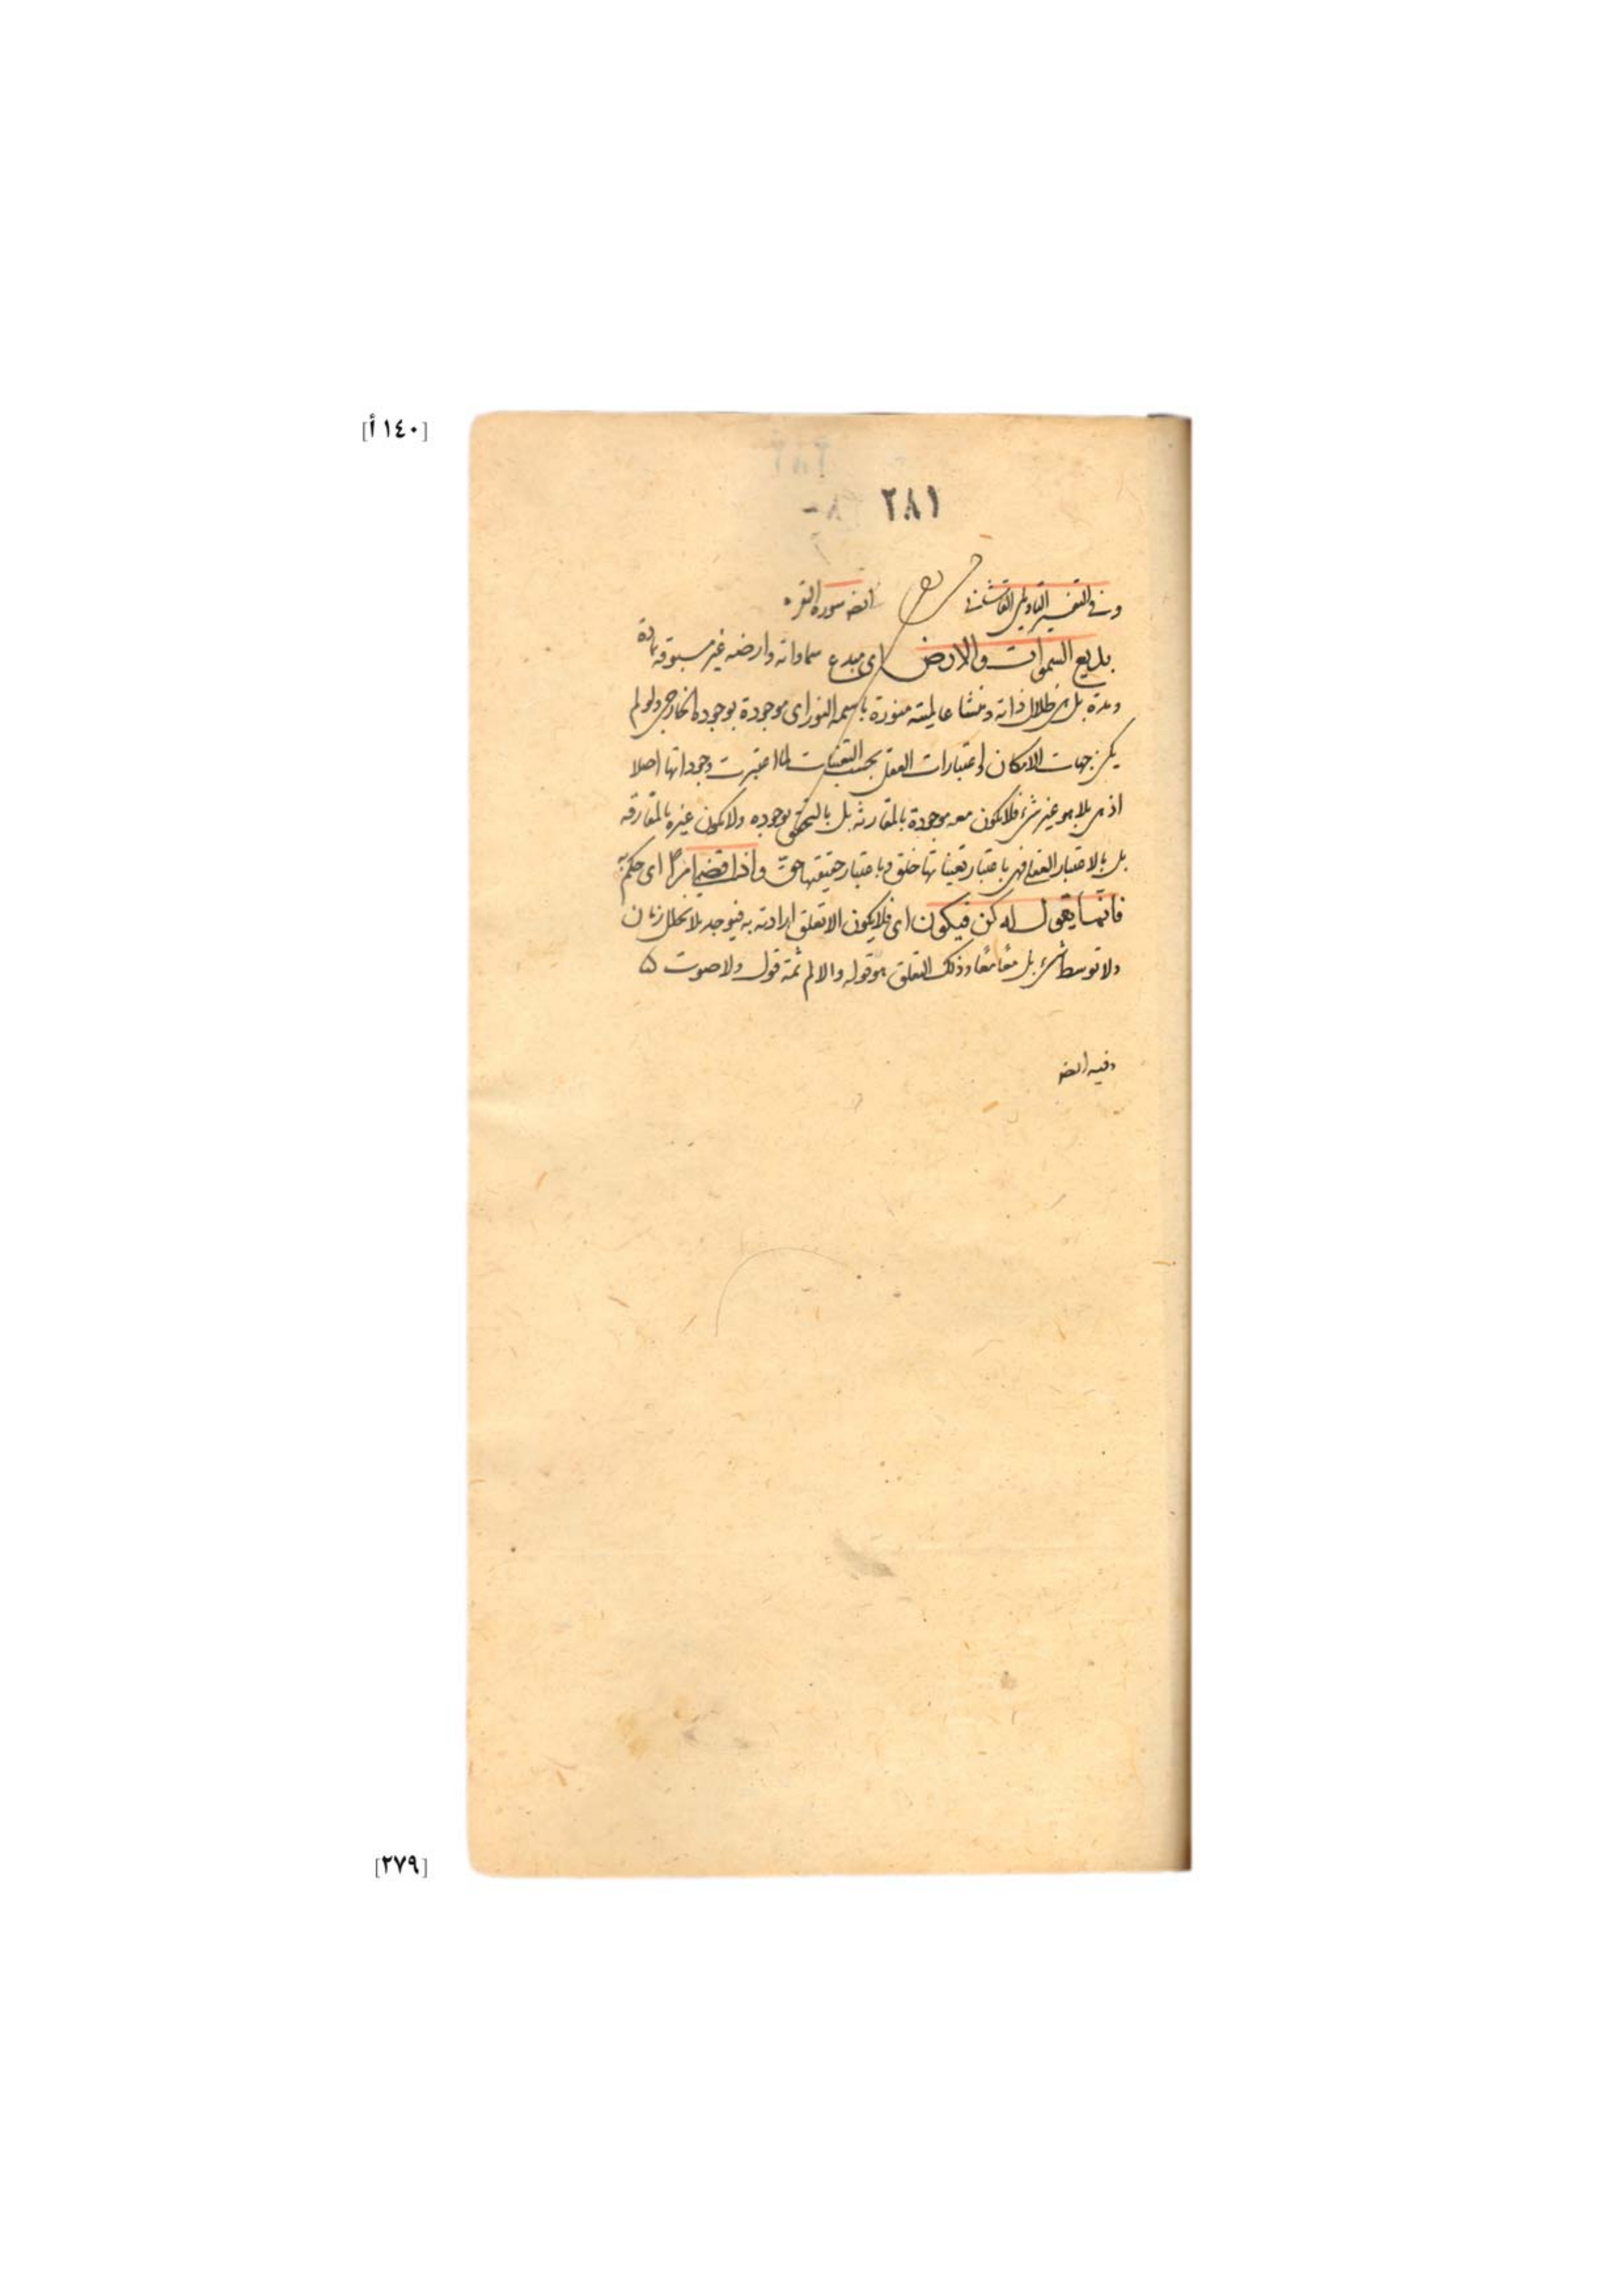 [١٤٠ أ]
٢٨١
وفي التفسير التأويلي القاشاني ايضا سورة البقرة
بديع السموات والارض اى مبدع سماواته وارضه غير مسبوقة بمادة
ومدة بل هي ظلال ذاته ومنشا عالميته منورة باسمه النور اى موجودة بوجوده الخارجي ولو لم
يكن جهات الامكان واعتبارات العقل بحسب التعينات لما اعتبرت وجوداتها اصلا
اذ هي بلا هو غير شئ فلا يكون معه موجودة بالمقارنة بل بالتحقق بوجوده ولا يكون غيره بالمفارقة
بل بالاعتبار العقلي فهي باعتبار تعيناتها خلق وباعتبار حقيقتها حق واذا قضى امرا اى حكم به
فانما يقول له كن فيكون اى فلا يكون الا تعلق ارادته به فيوجد بلا تخلل زمان
ولا توسط شئ بل معًا معًا وذلك التعلق هو قوله والا لم ثمة قول ولا صوت ۵
وفيه ايضا
[٢٧٩]